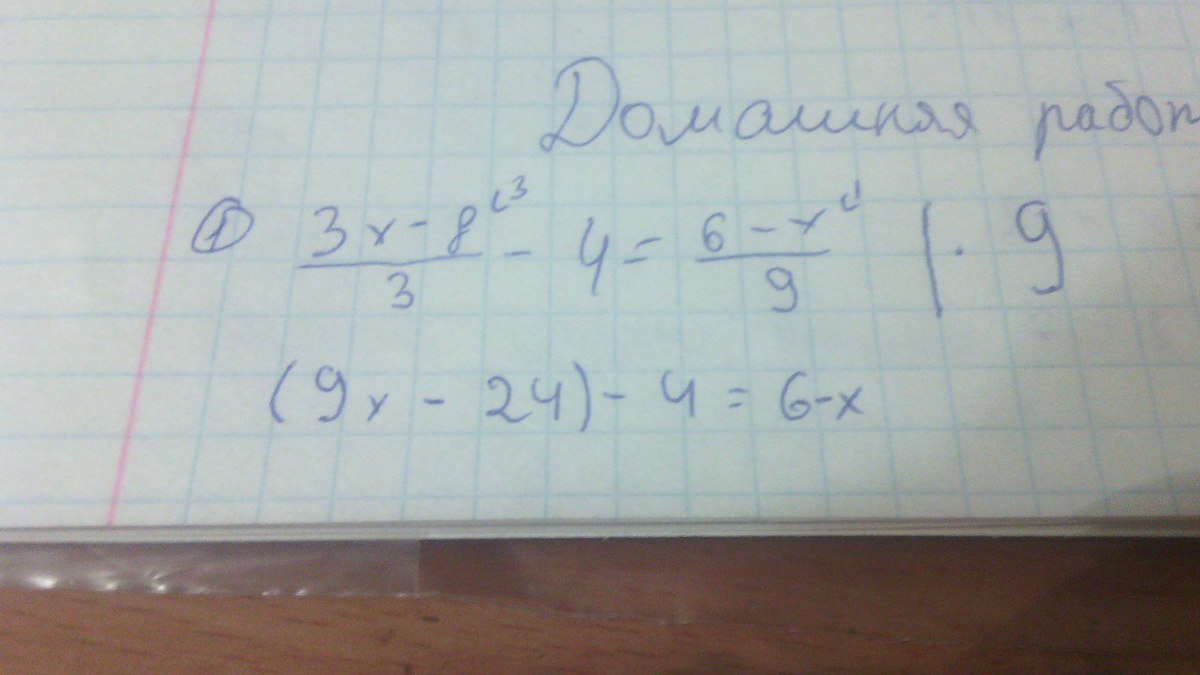 Домашняя работ
① \frac{3x-8^{3}}{3} - 4 = \frac{6-x^{1}}{9} | · 9
(9x - 24) - 4 = 6-x